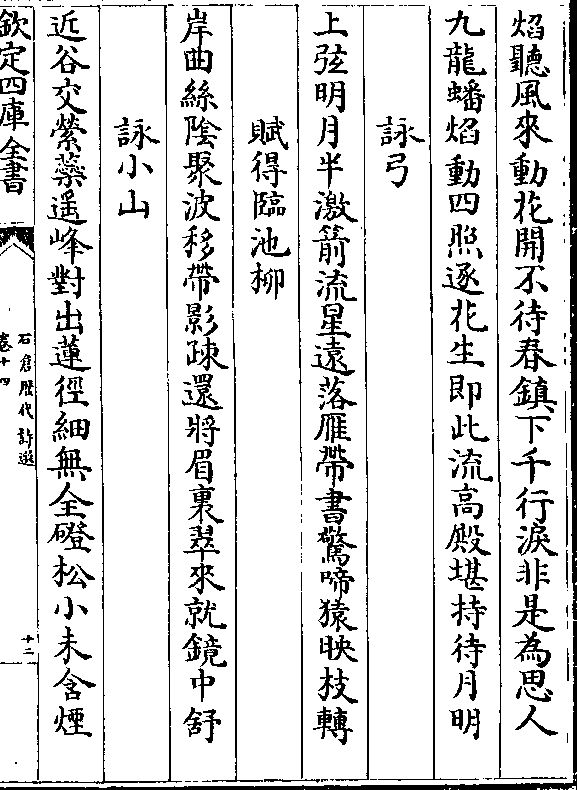 焰聽風來動花開不待春鎮下千行淚非是為思人
九龍蟠焰動四照逐花生即此流高殿堪持待月明
詠弓
上弦明月半激箭流星遠落雁帶書驚啼猿映枝轉
賦得臨池柳
岸曲絲陰聚波移帶影疎還將眉裏翠來就鏡中舒
詠小山
近谷交縈蘂遥峰對出蓮徑細無全磴松小未含煙
欽定四庫全書
石倉歴代詩選
卷十四
十二